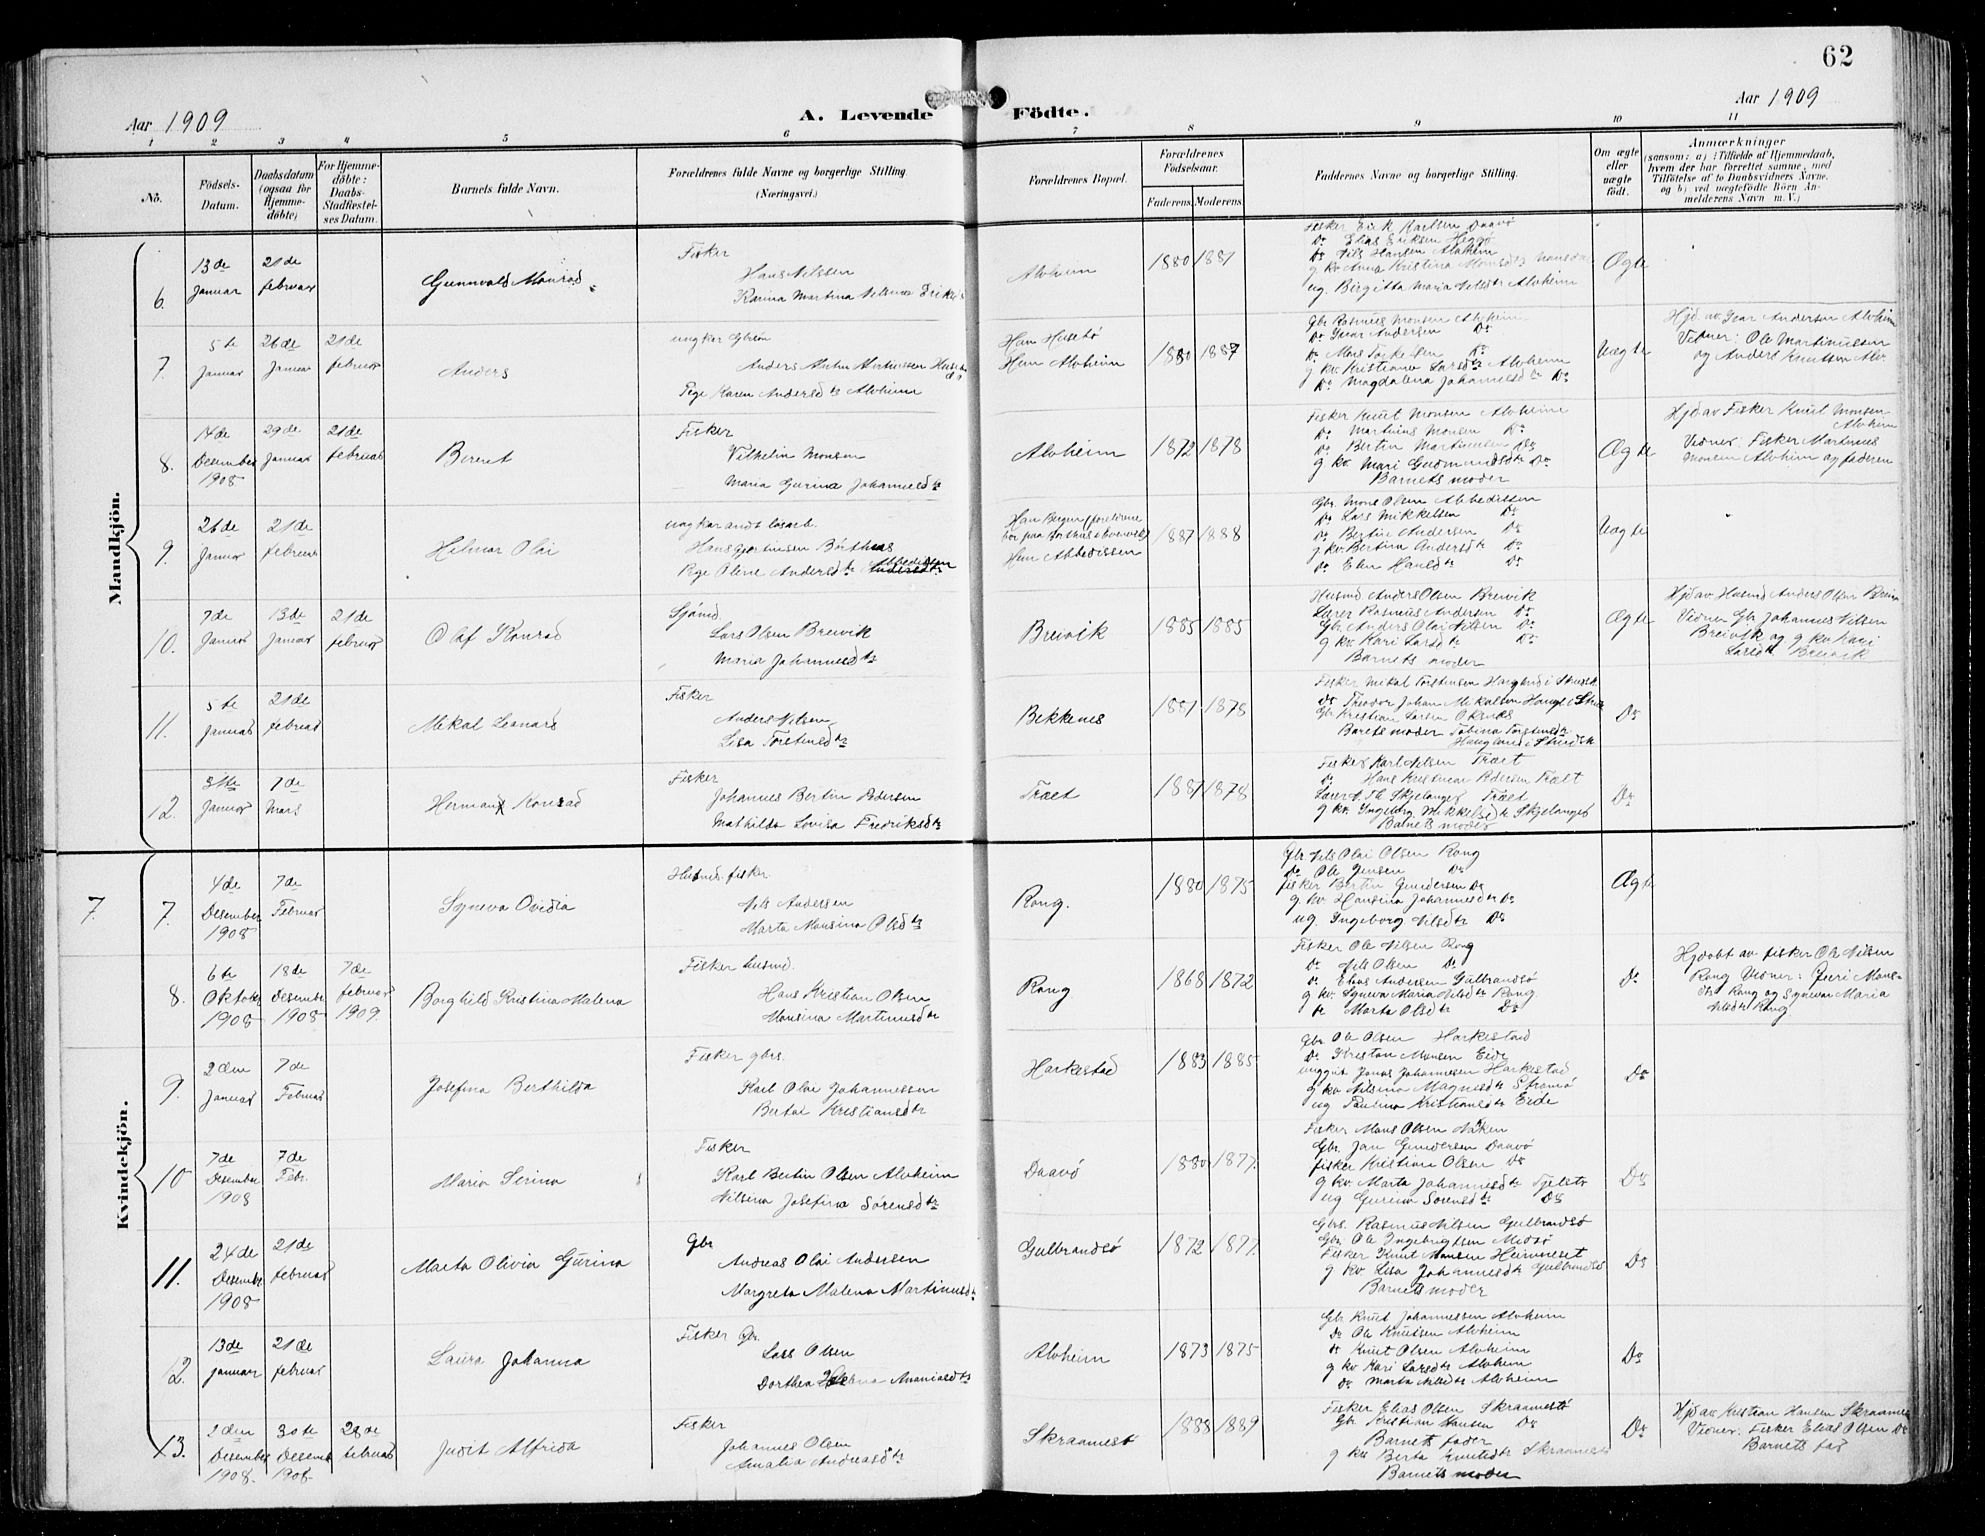 62
Aar 1909
A. Levende Födte.
Aar 1909
1 2 3 4 5 6 7 8 9 10 11
No.
Födsels-Datum.
Daabsdatum (ogsaa for Hjemmedöbte)
For Hjemmedöbte: Daabs-Stadfæstelses Datum.
Barnets fulde Navn.
Forældrenes fulde Navne og borgerlige Stilling (Næringsvei.)
Forældrenes Bopæl.
Forældrenes Födselsaar.
Faderens. Moderens.
Faddernes Navne og borgerlige Stilling.
Om ægte eller uægte födt.
Anmærkninger
(saasom: a) i Tilfælde af Hjemmedaab,
hvem der har forrettet samme, med
Tilföielse af to Daabsvidners Navne,
og b) ved uægtefödte Börn An-
melderens Navn m. V.)
Mandkjön.
6.
13de Januar
21de februar
Gunnvald Monrad
Fisker
Hans Nilssen
Karina Martina Nilsina
Alvheim
1880 1881
Fisker Erik Karlsen Daavø
Do Elias Eriksen Hegø
Do Nils Hansen Alvheim
g kv Anna Kristina Monsdtr
ug. Birgitta Maria Nilsdtr Alvheim
Ægte
7.
5te Januar
26de Januar
21de februar
Anders
ungkar
Pige Karen Andersdtr Alvheim
Han Husebø
Hun Alvheim
1880 1887
Gbr Rasmus Monsen Alvheim
Do Ivar Andersen Do
Do Mons Torkelsen Do
g kv Kristiane Larsdtr Alvheim
Do Magdalena Johannesdtr Do
Uægte
Hjd av Ivar Andersen Alvheim
Vidner: Ole Martinussen
og Anders Knutsen Alv.
8.
14de Desember 1908
29de Januar
21de februar
Berent
Fisker
Vilhelm Monsen
Maria Gurina Johannesdtr
Alvheim
1872 1878
Fisker Knut Monsen Alvheim
Do Martinus Monsen Do
Do Bertin Martinusen Do
g kv. Mari Gudmundsdtr Do
Barnets moder
Ægte
Hjd av Fisker Knut Monsen Alvheim
Vidner: Fisker Martinus
Monsen Alvheim og faderen
9.
26de Januar
21de februar
Hilmar Olai
ungkar
Pige Oline Andersdtr Abbedissen
Hun Abbedissen
1887 1888
Gbr. Mons Olsen Abbedissen
Do Lars Mikkelsen Do
Do Bertin Andersen Do
g kv Bertina Andersdtr Do
Do Elen Hansdtr Do
Uægte
10.
7de Januar
13de Januar
21de februar
Olaf Konrad
Sjömd.
Lars Olsen Breivik
Maria Johannesdtr
Breivik
1885 1885
Husmd Anders Olsen Breivik
Lærer Rasmus Andersen Do
Gbr Anders Olai Nilsen Do
g kv Kari Larsdtr Do
Barnets moder
Ægte
Hjd av Husmd Anders Olsen Breivi
Vidner Gbr Johannes Nilsen
Breivik og g kv Kari
Larsdtr Breivik
11.
5te Januar
21de februar
Mekal Leonard
Fisker
Anders Nilsen
Lisa Torstensdtr
Bekkenes
1881 1878
Do Theodor Johan Mekalsen
Gbr Kristian Larsen Oknes
Barets moder Tobina Torstensdtr
Do
12.
31te Januar
7de Mars
Herman Konrad
Fisker
Johannes Bertin Pedersen
Mathilda Lovisa Fredriksdtr
Træt
1881 1878
Fisker Karl Nilsen Træt
Do Hans Kristian Pedersen Træt
g kv. Ingeborg Mikkelsdtr Skjelanger
Barnets moder
Do
Kvindekjön.
7
7.
4de Desember 1908
7de Februar
Syneva Ovidia
Husmd. fisker
Nils Andersen
Marta Monsina Olsdtr
Rong.
1880 1875
Gbr. Nils Olai Olsen Rong
Do Ole Jensen Do
fisker Bertin Gundersen Do
g kv. Hansina Johannesdtr Do
ug. Ingeborg Nilsdtr Do
Ægte
8.
6te Oktober 1908
18de Desember 1908
7de februar 1909
Borghild Kristina Malena
Fisker husmd.
Hans Kristian Olsen
Monsina Martinusdtr
Rong
1868 1872
Fisker Ole Nilsen Rong
Do Nils Olsen Do
Do Elias Andersen Gulbrandsø
g kv. Syneva Maria Nilsdtr Rong
Do Marta Olsdtr Do
Do
Hjdøbt av fisker Ole Nilsen
Rong Vidner: Guri Mons-
dtr Rong og Syneva Maria
Nilsdtr Rong
9.
2den Januar
7de Februar
Josefina Berthilda
Fisker gbrs.
Karl Olai Johannessen
Bertai Kristiansdtr
Harkestad
1883 1885
Gbr Ole Olsen Harkestad
Do Kristian Monsen Eide
unggut Jonas Johannesen Harkestad
g kv Nilsina Magnesdtr Strømø
ug Paulina Kristiansdtr Eide
Do
10
7de Desember 1908
7de Febr.
Maria Serina
Fisker
Karl Bertin Olsen Alvheim
Nilsina Josefina Sörensdtr
Daavø
1880 1877
Fisker Mons Olsen Naken
Gbr. Jan Gundersen Daavø
fisker Kristian Olsen Do
g kv. Marta Johannesdtr Fjelstø
ug Gurina Sorensdtr Do
Do
11.
24de Desember 1908
21de februar
Marta Olivia Gurina
Gbr
Andreas Olai Andersen
Margreta Malena Martinusdtr
Gulbrandsø
1872 1877
Gbr. Rasmus Nilsen Gulbrandsø
Gbr. Ole Ingebrigtsen Midsø
Fisker Knut Monsen
g kv. Lisa Johannesdtr Gulbrandsø
Barnets moder
Do
12.
13de januar
21de februar
Laura Johanna
Fisker Gbr.
Lars Olsen
Dorthea Helena Ananiasdtr
Alvheim
1873 1875
Gbr Knut Johannessen Alvheim
Do Ole Knutsen Alvheim
Do Knut Olsen Alvheim
g kv Kari Larsdtr Alvheim
Do Marta Nilsdtr Alvheim
Do
13.
2den Desember 1908.
30te Desemb 1908
28de februar
Judit Alfrida
Fisker
Johannes Olsen
Amalia Andreasdtr
Skraamestø
1888 1889
Fisker Elias Olsen Skraamestø
Gbr Kristian Hansen Do
Barnets fader
g kv Berta Knutsdtr Skraamestø
Barnets moder
Do
Hjd av Kristian Hansen Skraames
Vidner: Fisker Elias Olsen Do
Barnets far